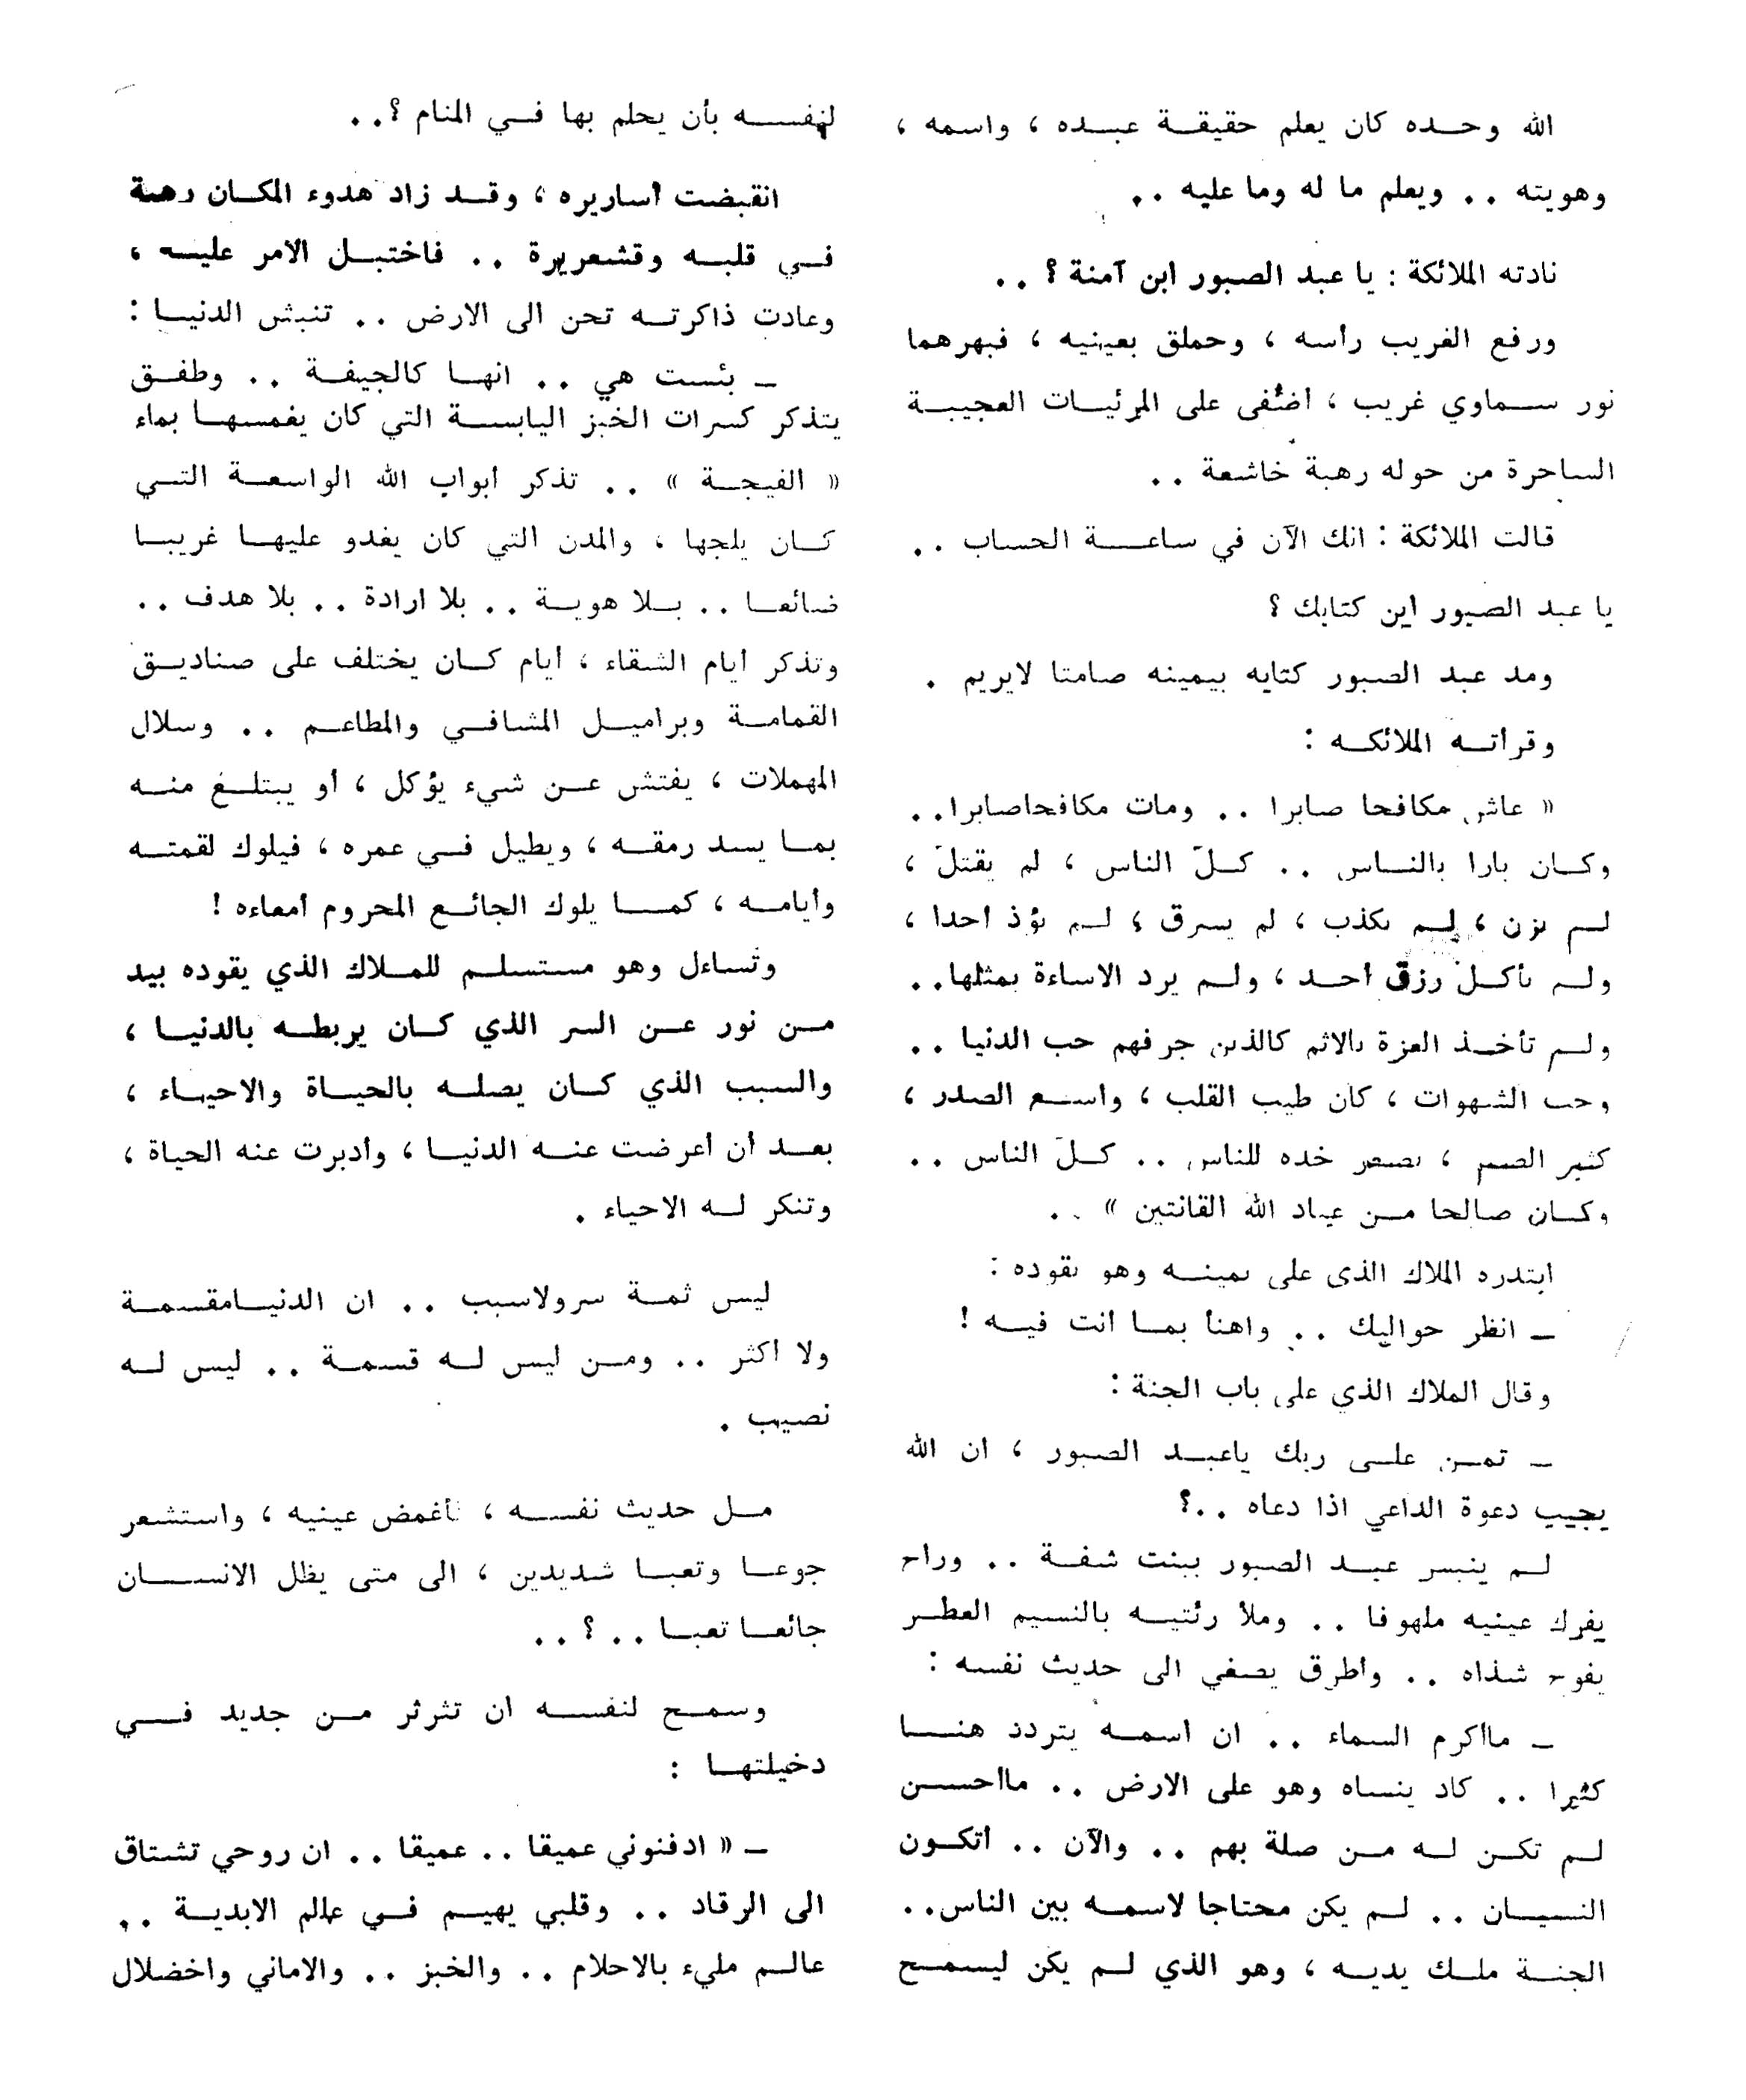 الله وحده كان يعلم حقيقة عبده ، واسمه ،
وهويته .. ويعلم ما له وما عليه ..
نادته الملائكة : يا عبد الصبور ابن آمنة ؟ ..
ورفع الغريب رأسه ، وحملق بعينيه ، فبهرهما
نور سماوي غريب ، أضفى على المرئيات العجيبة
الساحرة من حوله رهبة خاشعة ..
قالت الملائكة : انك الآن في ساعة الحساب ..
يا عبد الصبور أين كتابك ؟
ومد عبد الصبور كتابه بيمينه صامتا لايريم .
وقرأته الملائكه :
« عاش مكافحا صابرا .. ومات مكافحاصابرا..
وكان بارا بالناس .. كل الناس ، لم يقتل ،
لم يزن ، لم يكذب ، لم يسرق ، لم يؤذ أحدا ،
ولم يأكل رزق أحد ، ولم يرد الاساءة بمثلها..
ولم تأخذ العزة بالاثم كالذين جرفهم حب الدنيا ..
وحب الشهوات ، كان طيب القلب ، واسع الصدر ،
كثير الصبر ، يصعر خده للناس .. كل الناس ..
وكان صالحا من عباد الله القانتين » ..
ابتدره الملاك الذي على يمينه وهو يقوده :
ـ انظر حواليك .. واهنأ بما أنت فيه !
وقال الملاك الذي على باب الجنة :
ـ تمن على ربك ياعبد الصبور ، ان الله
يجيب دعوة الداعي اذا دعاه ..؟
لم ينبس عبد الصبور ببنت شفة .. وراح
يفرك عينيه ملهوفا .. وملأ رئتيه بالنسيم العطر
يفوح شذاه .. وأطرق يصغي الى حديث نفسه :
ـ ماأكرم السماء .. ان اسمه يتردد هنا
كثيرا .. كاد ينساه وهو على الارض .. ماأحسن
لم تكن له من صلة بهم .. والآن .. أتكون
النسيان .. لم يكن محتاجا لاسمه بين الناس..
الجنة ملك يديه ، وهو الذي لم يكن ليسمح
لنفسه بأن يحلم بها في المنام ؟..
انقبضت أساريره ، وقد زاد هدوء المكان رهبة
في قلبه وقشعريرة .. فاختبل الامر عليه ،
وعادت ذاكرته تحن الى الارض .. تنبش الدنيا :
ـ بئست هي .. انها كالجيفة .. وطفق
يتذكر كسرات الخبز اليابسة التي كان يغمسها بماء
« الفيجة » .. تذكر أبواب الله الواسعة التي
كان يلجها ، والمدن التي كان يغدو عليها غريبا
ضائعا .. بلا هوية .. بلا ارادة .. بلا هدف ..
وتذكر أيام الشقاء ، أيام كان يختلف على صناديق
القمامة وبراميل المشافي والمطاعم .. وسلال
المهملات ، يفتش عن شيء يؤكل ، أو يبتلغ منه
بما يسد رمقه ، ويطيل في عمره ، فيلوك لقمته
وأيامه ، كما يلوك الجائع المحروم أمعاءه !
وتساءل وهو مستسلم للملاك الذي يقوده بيد
من نور عن السر الذي كان يربطه بالدنيا ،
والسبب الذي كان يصله بالحياة والاحياء ،
بعد أن أعرضت عنه الدنيا ، وأدبرت عنه الحياة ،
وتنكر له الاحياء .
ليس ثمة سرولاسبب .. ان الدنيامقسمة
ولا أكثر .. ومن ليس له قسمة .. ليس له
نصيب .
مل حديث نفسه ، فأغمض عينيه ، واستشعر
جوعا وتعبا شديدين ، الى متى يظل الانسان
جائعا تعبا .. ؟ ..
وسمح لنفسه ان تثرثر من جديد في
دخيلتها :
ـ « ادفنوني عميقا .. عميقا .. ان روحي تشتاق
الى الرقاد .. وقلبي يهيم في عالم الابدية ..
عالم مليء بالاحلام .. والخبز .. والاماني واخضلال